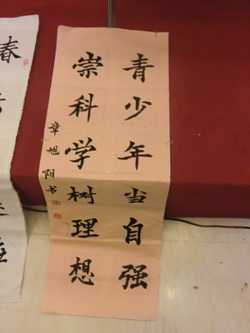 青少年当自强
崇科学树理想
章旭阳书
春